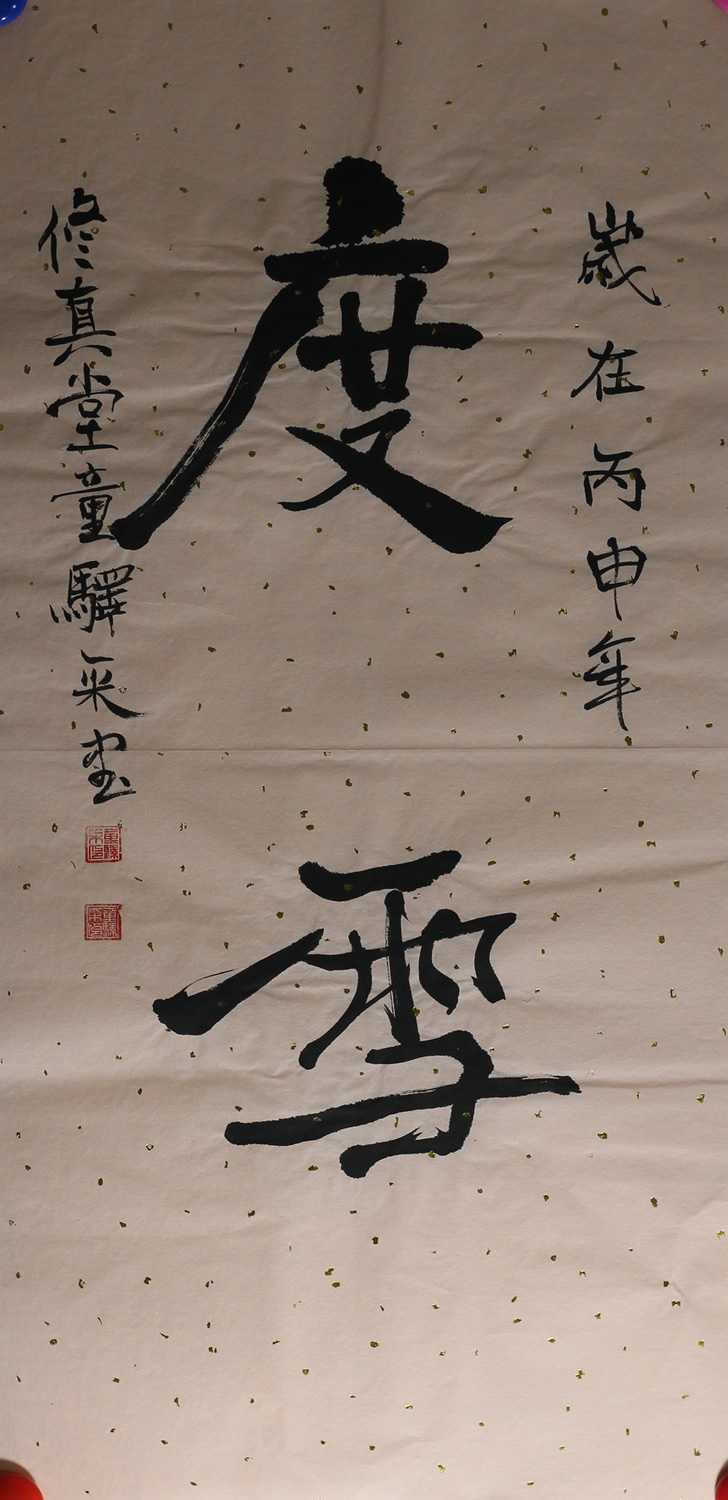 歲在丙申年
度雪
修真堂童驛采書